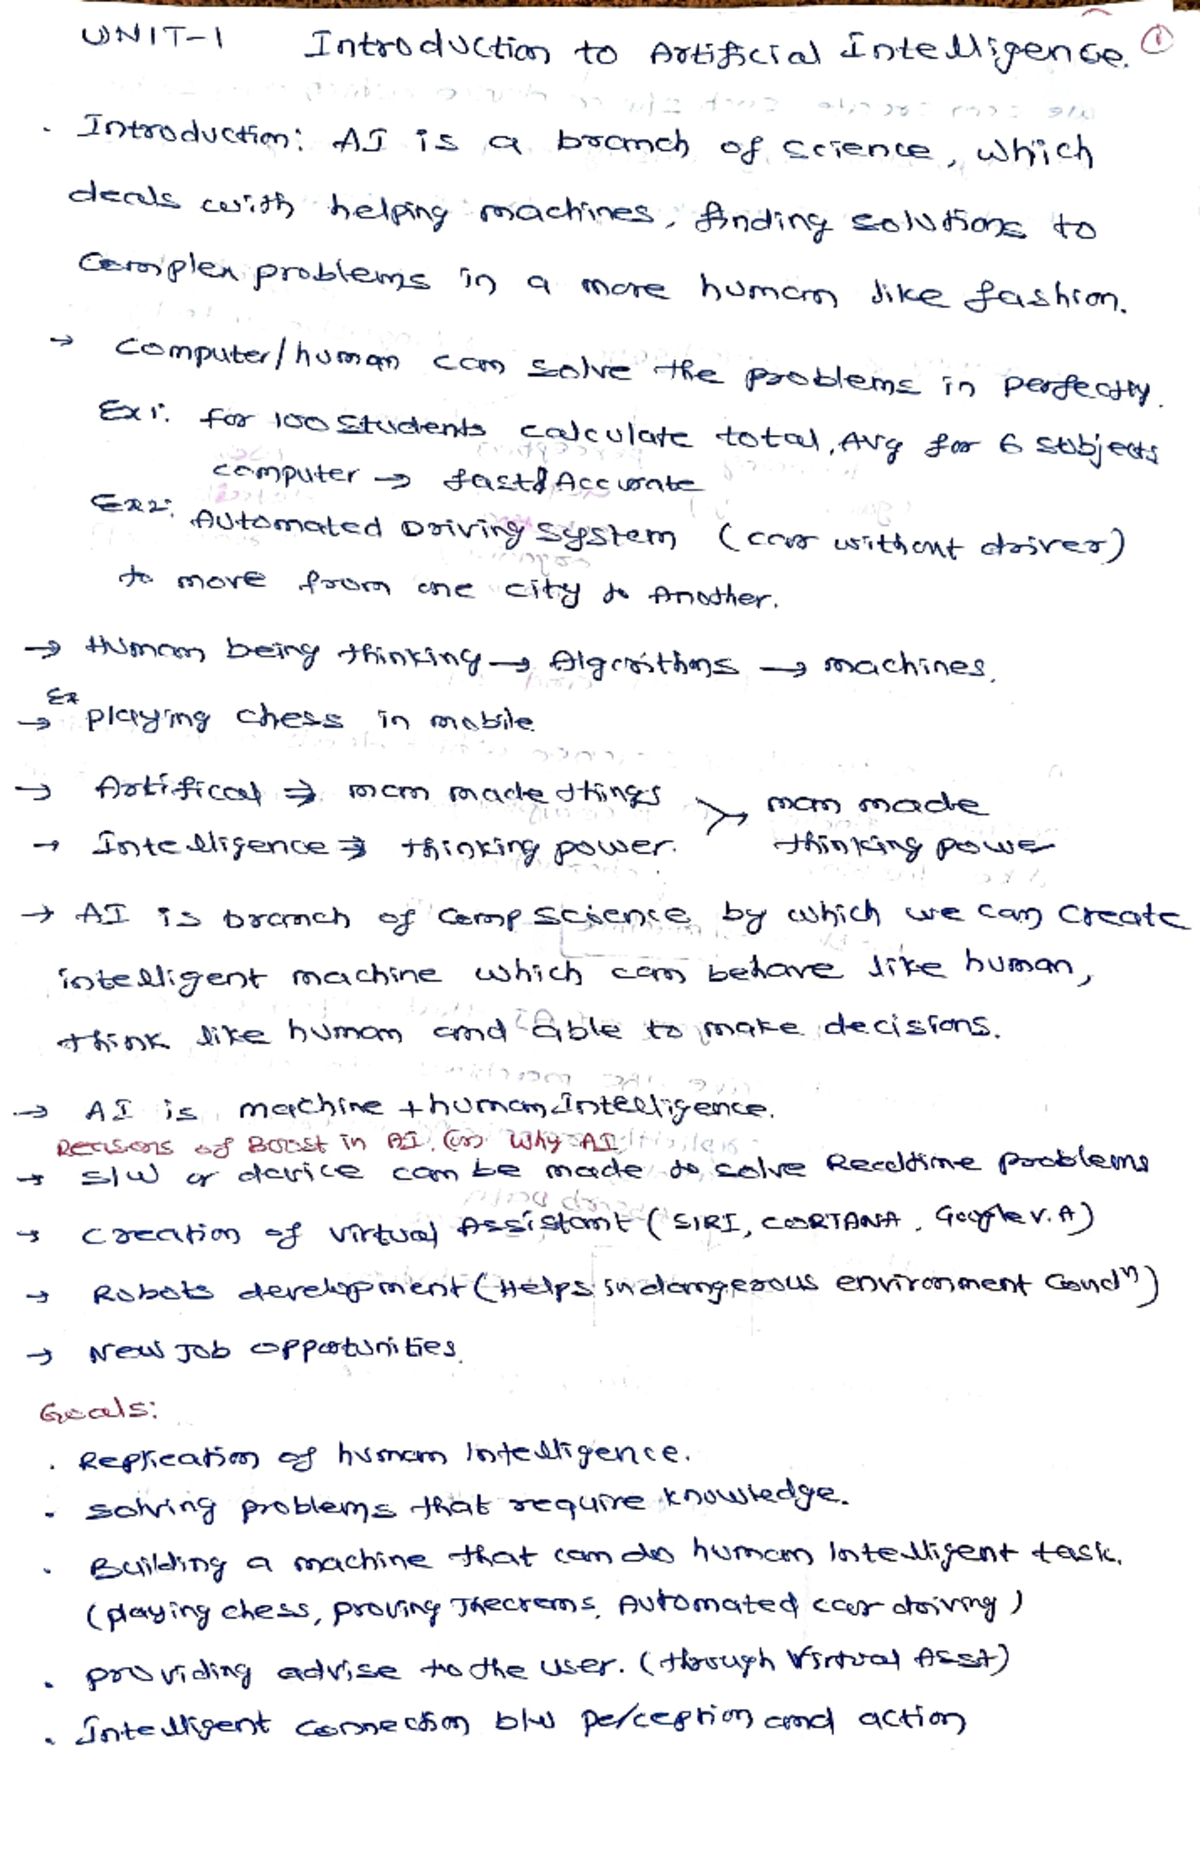 UNIT-1 Introduction to Artificial Intelligence. 1
. Introduction: AI is a branch of science, which
deals with helping machines, finding solutions to
complex problems in a more human like fashion.
→ Computer/human can solve the problems in perfectly.
Ex1: for 100 Students calculate total, Avg for 6 subjects
computer → fast & Accurate
Ex2: Automated Driving System (car without driver)
to move from one city to Another.
→ Human being thinking → Algorithms → machines.
Ex
→ playing chess in mobile.
→ Artifical ⇒ man made things
man made
→ Intelligence ⇒ thinking power.
thinking powe
→ AI is branch of Comp Science by which we can Create
intelligent machine which can behave like human,
think like human and able to make decisions.
→ AI is machine + human Intelligence.
Reasons of Boost in AI. (or) Why AI
→ S/W or device can be made to solve Realtime problems
→ Creation of virtual Assistant (SIRI, CORTANA, Google V.A)
→ Robots development (Helps in dangerous environment Condⁿ)
→ New Job opportunities.
Goals:
. Replication of human Intelligence.
. Solving problems that require knowledge.
. Building a machine that can do human Intelligent task.
(playing chess, proving Theorems, Automated car driving)
. providing advise to the user. (through Virtual Asst)
. Intelligent Connection b/w perception and action